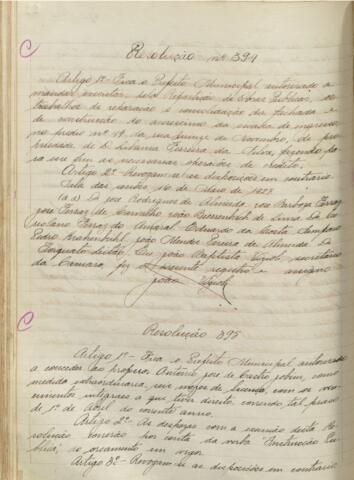 Resolução nº 394
Artigo 1º - Fica o Prefeito Municipal autorizado a
mandar executar, pela Repartição de Obras Publicas, os
trabalhos de reparação e consolidação da fachada e
de construcção do accrescimo da escada de ingresso
no predio nº 19 da rua Quinze de Novembro, de pro-
priedade de D. Ferreira da Silva, fazendo pa-
ra esse fim as necessarias operações de credito.
Artigo 2º - Revogam-se as disposições em contrario.
Sala das sessões, 16 de de 1927.
(a.a) Dr José Rodrigues de Almeida, Barbosa Ferraz,
José Ferraz de Carvalho, João de Lima, Dr Co-
riolano Ferraz do Amaral, Eduardo da Costa Sampaio,
Pedro Krahenbuhl, João Mendes Pereira de Almeida, Dr
Torquato Leitão. Eu, João Baptista Vizioli, secretario
da Camara, fiz o presente registro e assigno
João Vizioli
Resolução 395
Artigo 1º - Fica o Prefeito Municipal autorizado
a conceder ao professor Antonio José de Castro, como
medida extraordinaria, um mez de licença, com os ven-
cimentos integraes a que tiver direito, correndo tal prazo
de 1º de Abril do corrente anno.
Artigo 2º - As despezas com a execução desta Re-
solução correrão por conta da verba "Instrucção Pu-
blica", do orçamento em vigor.
Artigo 3º - Revogam-se as disposições em contrario